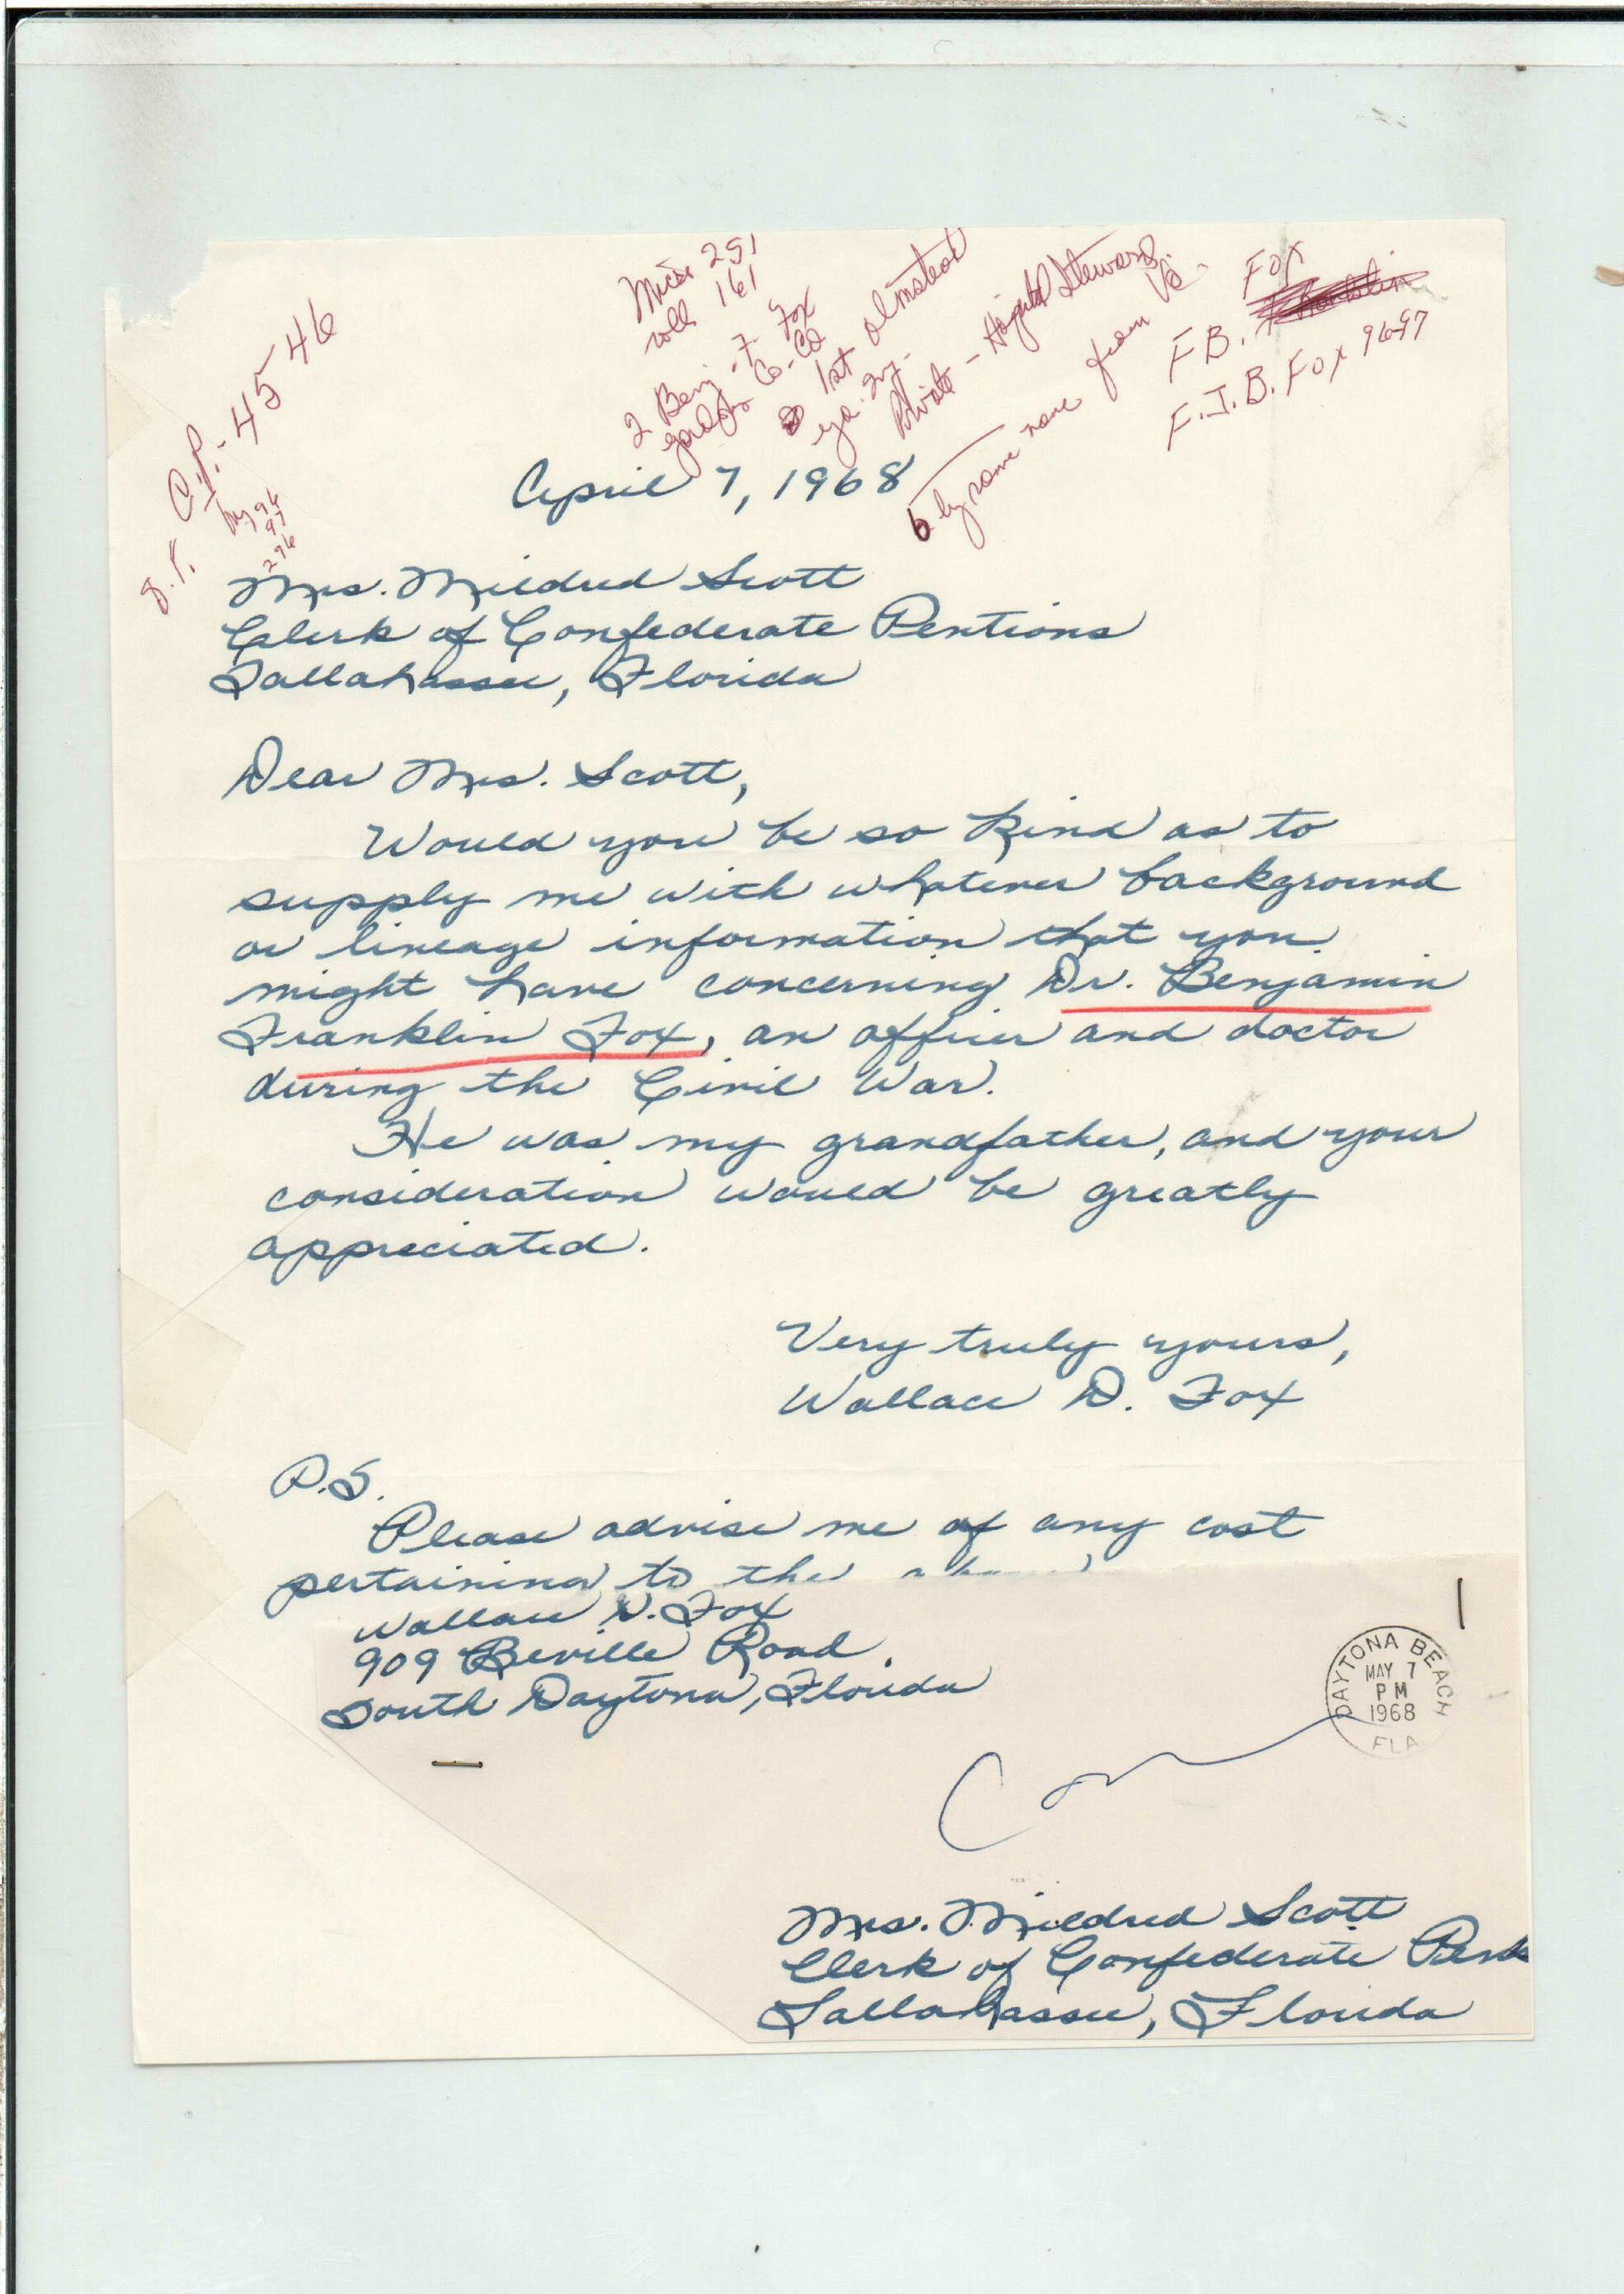 Micro 251
roll 161
2 Benj. F. Fox
Co. Co
1st Olmstead
Private - Hospital Steward
6 by name none from
Fox
F.B.
F.J.B. Fox 96-97
C.P. - 4546
97
296
April 7, 1968
Mrs. Mildred Scott
Clerk of Confederate Pentions
Tallahassee, Florida
Dear Mrs. Scott,
Would you be so kind as to
supply me with whatever background
or lineage information that you
might have concerning Dr. Benjamin
Franklin Fox, an officer and doctor
during the Civil War.
He was my grandfather, and your
consideration would be greatly
appreciated.
Very truly yours,
Wallace D. Fox
P.S.
Please advise me of any cost
pertaining to the
Wallace D. Fox
909 Beville Road
South Daytona, Florida
DAYTONA BEACH
MAY 7
PM
1968
FLA
Mrs. Mildred Scott
Clerk of Confederate
Tallahassee, Florida